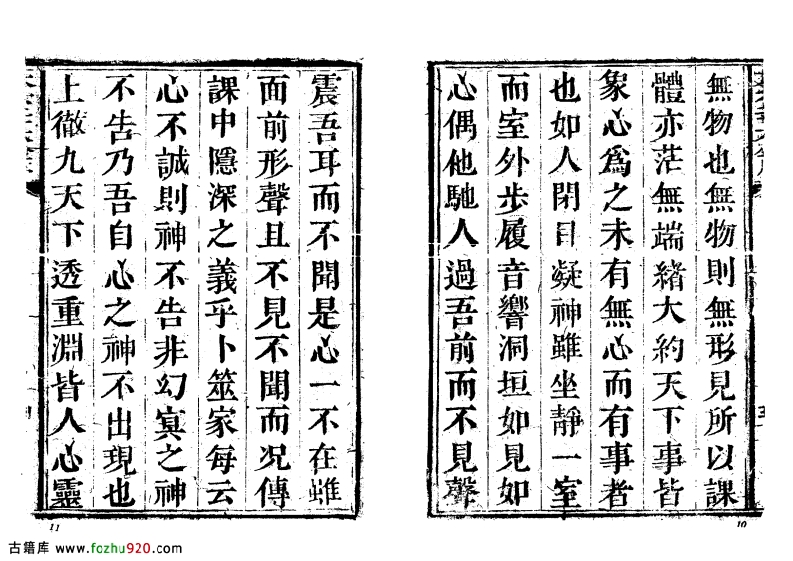 無物也無物則無形見所以課
體亦茫無端緒大約天下事皆
象心爲之未有無心而有事者
也如人閉目凝神雖坐靜一室
而室外步履音響洞垣如見如
心偶他馳人過吾前而不見聲
10
震吾耳而不聞是心一不在雖
面前形聲且不見不聞而况傳
課中隱深之義乎卜筮家每云
心不誠則神不告非幻冥之神
不告乃吾自心之神不出現也
上徹九天下透重淵皆人心靈
11
古籍库 www.fozhu920.com